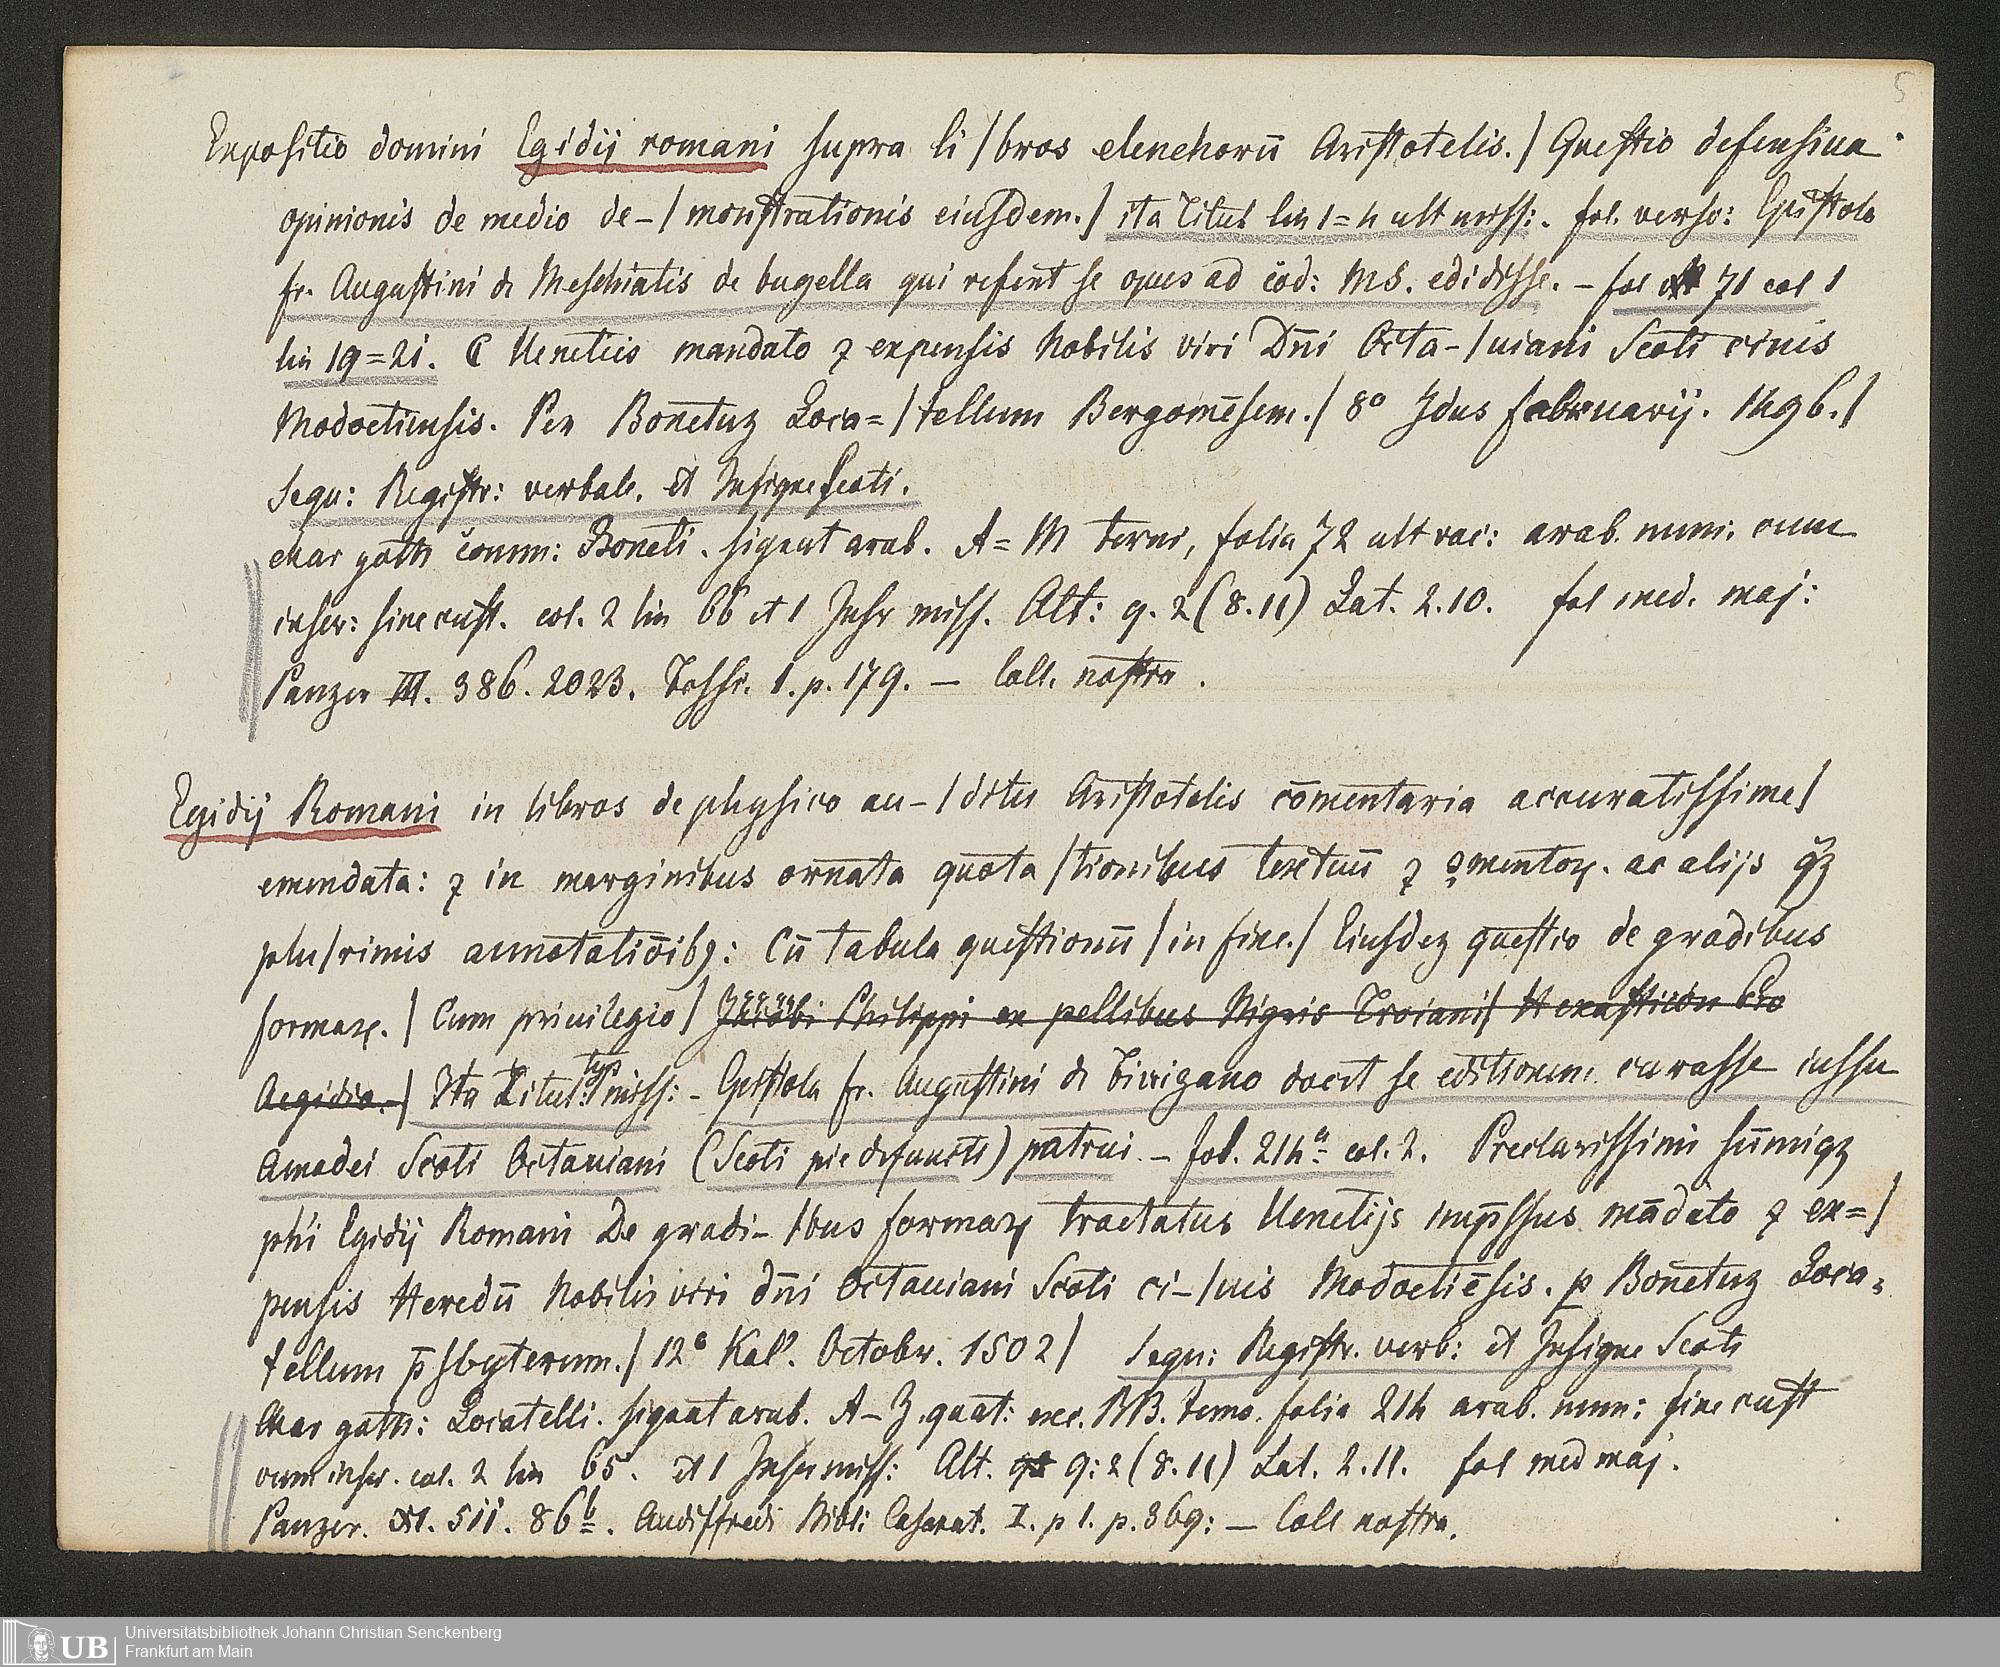 5
Expositio domini Egidij romani supra li / bros elenchorū Aristotelis. / Questio defensiua
opinionis de medio de-/ monstrationis eiusdem. / ita Titul lin 1=4 ult miss: . fol. verso: Epistola
fr. Augustini de Meschiatis de bugella qui refert se opus ad cod: MS. edidisse. - fol 71 col 1
lin 19=21. Venetiis mandato ⁊ expensis Nobilis viri Dn̄i Octa-/uiani Scoti ciuis
Modoetiensis. Per Bonetuz Loca=/tellum Bergomēsem. / 8° Jdus februarij. 1496. /
Sequ: Registr: verbale. et Insigne Scoti.
char goth comm: Boneti . signat arab. A=M terni, folia 72 ult vac: arab. num: cum
inscr: sine cust. col. 2 lin 66 et 1 Inscr miss. Alt: 9. 2 (8.11) Lat. 2.10. fol med. maj:
Panzer III. 386. 2023. Tossi. 1. p. 179. — Coll. nostra .
Egidij Romani in libros de physico au-/ditu Aristotelis cōmentaria accuratissime /
emendata: ⁊ in marginibus ornata quota / tionibus textuū ⁊ ꝯmentoꝝ. ac alijs qꝫ
plu/rimis annotatiōibꝫ: Cū tabula questionū / in fine. / Eiusdez questio de gradibus
formaꝝ. / Cum priuilegio / Jacobi Philippi ex pellibus Nigris Troiani / Hexasticon Pro
Aegidio. / Ita Titul: typ miss: - Epistola fr. Augustini de Birigano docet se editionem curasse iussu
Amadei Scoti Octauiani (Scoti pie defuncti) patrui. - fol. 214ª col. 2. Preclarissimi sūmiqꝫ
phi Egidij Romani De gradi-/bus formaꝝ tractatus Uenetijs imp̄ssus mādato ⁊ ex=/
pensis Heredū Nobilis viri dn̄i Octauiani Scoti ci-/uis Modoetiēsis. p Bonetuz Loca=
tellum p̄sbyterum. / 12° Kal'. Octobr. 1502 / Sequ: Registr. verb: et Insigne Scoti
Char goth: Locatelli. signat arab. A-Z. quat: exc. BB. terno. folia 214 arab. num: sine cust
cum inscr. col. 2 lin 65. et 1 Inscr miss: Alt. 9: 2 (8.11) Lat. 2.11. fol med maj.
Panzer. XI. 511. 86b. Audiffredi Bibl: Casanat. I. p 1. p. 369: — Coll nostra.
UB
Universitätsbibliothek Johann Christian Senckenberg
Frankfurt am Main